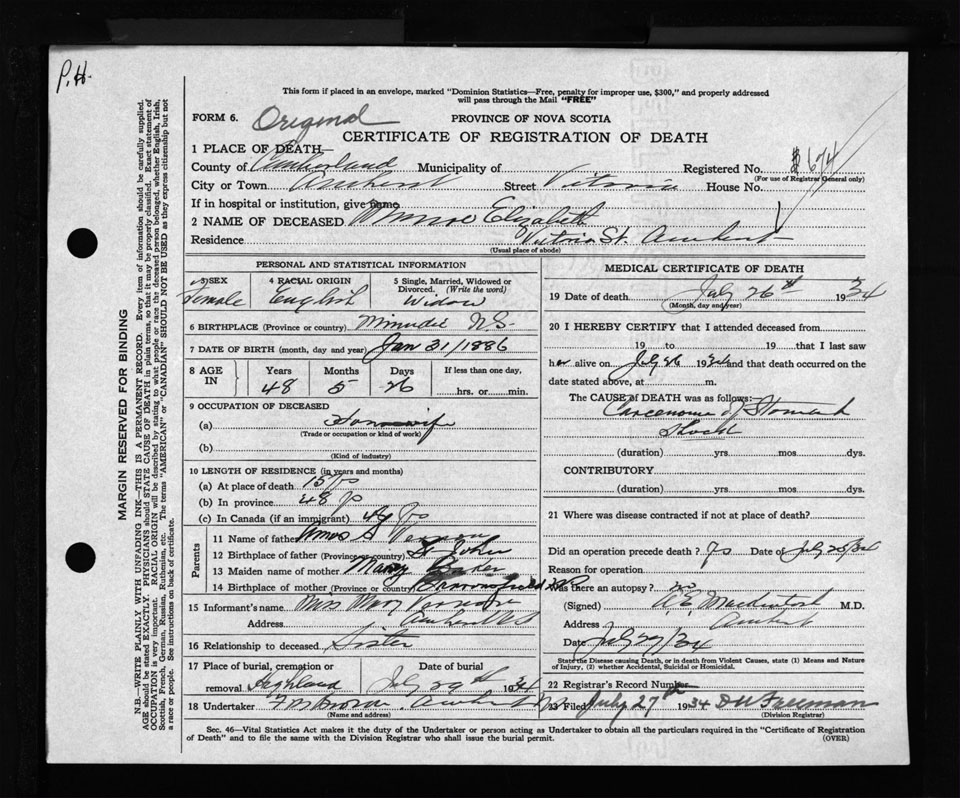 P.H.
This form if placed in an envelope, marked "Dominion Statistics—Free, penalty for improper use, $300," and properly addressed
will pass through the Mail "FREE"
FORM 6. Original PROVINCE OF NOVA SCOTIA
CERTIFICATE OF REGISTRATION OF DEATH
1 PLACE OF DEATH—
County of Cumberland Municipality of Registered No. 674
(For use of Registrar General only)
City or Town Amherst Street Victoria House No.
If in hospital or institution, give name
2 NAME OF DECEASED Elizabeth
Residence Victoria St. Amherst
(Usual place of abode)
PERSONAL AND STATISTICAL INFORMATION
3 SEX Female
4 RACIAL ORIGIN English
5 Single, Married, Widowed or Divorced. (Write the word) Widow
6 BIRTHPLACE (Province or country) Minudie N.S.
7 DATE OF BIRTH (month, day and year) Jan 31/1886
8 AGE IN Years 48 Months 5 Days 26 If less than one day, hrs. or min.
9 OCCUPATION OF DECEASED
(a) Housewife
(Trade or occupation or kind of work)
(b)
(Kind of industry)
10 LENGTH OF RESIDENCE (in years and months)
(a) At place of death 15
(b) In province 48
(c) In Canada (if an immigrant)
Parents
11 Name of father Amos S
12 Birthplace of father (Province or country) St John
13 Maiden name of mother Mary
14 Birthplace of mother (Province or country)
15 Informant's name Mrs
Address Amherst N.S.
16 Relationship to deceased Sister
17 Place of burial, cremation or removal Highland
Date of burial July 29th 1934
18 Undertaker Amherst
(Name and address)
MEDICAL CERTIFICATE OF DEATH
19 Date of death July 26th 1934
(Month, day and year)
20 I HEREBY CERTIFY that I attended deceased from
19 to 19 that I last saw
her alive on July 26 1934 and that death occurred on the
date stated above, at m.
The CAUSE of DEATH was as follows:
of Stomach
(duration) yrs mos dys.
CONTRIBUTORY
(duration) yrs mos dys.
21 Where was disease contracted if not at place of death?
Did an operation precede death? Date of July 25/34
Reason for operation
Was there an autopsy? no
(Signed) M.D.
Address Amherst
Date July 27/34
State the Disease causing Death, or in death from Violent Causes, state (1) Means and Nature
of Injury, (2) whether Accidental, Suicidal or Homicidal.
22 Registrar's Record Number
23 Filed July 27th 1934 D W Freeman
(Division Registrar)
Sec. 46—Vital Statistics Act makes it the duty of the Undertaker or person acting as Undertaker to obtain all the particulars required in the "Certificate of Registration
of Death" and to file the same with the Division Registrar who shall issue the burial permit. (OVER)
MARGIN RESERVED FOR BINDING
N.B.—WRITE PLAINLY WITH UNFADING INK—THIS IS A PERMANENT RECORD. Every item of information should be carefully supplied.
AGE should be stated EXACTLY. PHYSICIANS should STATE CAUSE OF DEATH in plain terms, so that it may be properly classified. Exact statement of
OCCUPATION is very important. RACIAL ORIGIN will be described by stating to what people or race the deceased person belonged, whether English, Irish,
Scottish, French, German, Russian, Ruthenian, etc. The terms "AMERICAN" or "CANADIAN" SHOULD NOT BE USED as they express citizenship but not
a race or people. See instructions on back of certificate.